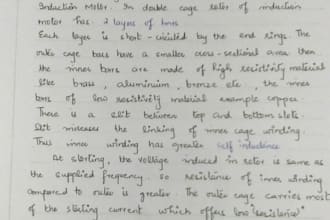 Induction Motor. In double cage rotor of induction
motor has 2 layers of bars
Each layer is short-circuited by the end rings. The
outer cage bars have a smaller cross-sectional area than
the inner bars are made of high resistivity material
like brass, aluminium, bronze etc., the inner
bars of low resistivity material example copper.
There is a slit between top and bottom slots.
Slit increases the linking of inner cage winding.
Thus inner winding has greater self inductance
At starting, the voltage induced in rotor is same as
the supplied frequency. so resistance of inner winding
compared to outer is greater. The outer cage carries most
of the starting current which offers low "resistance"